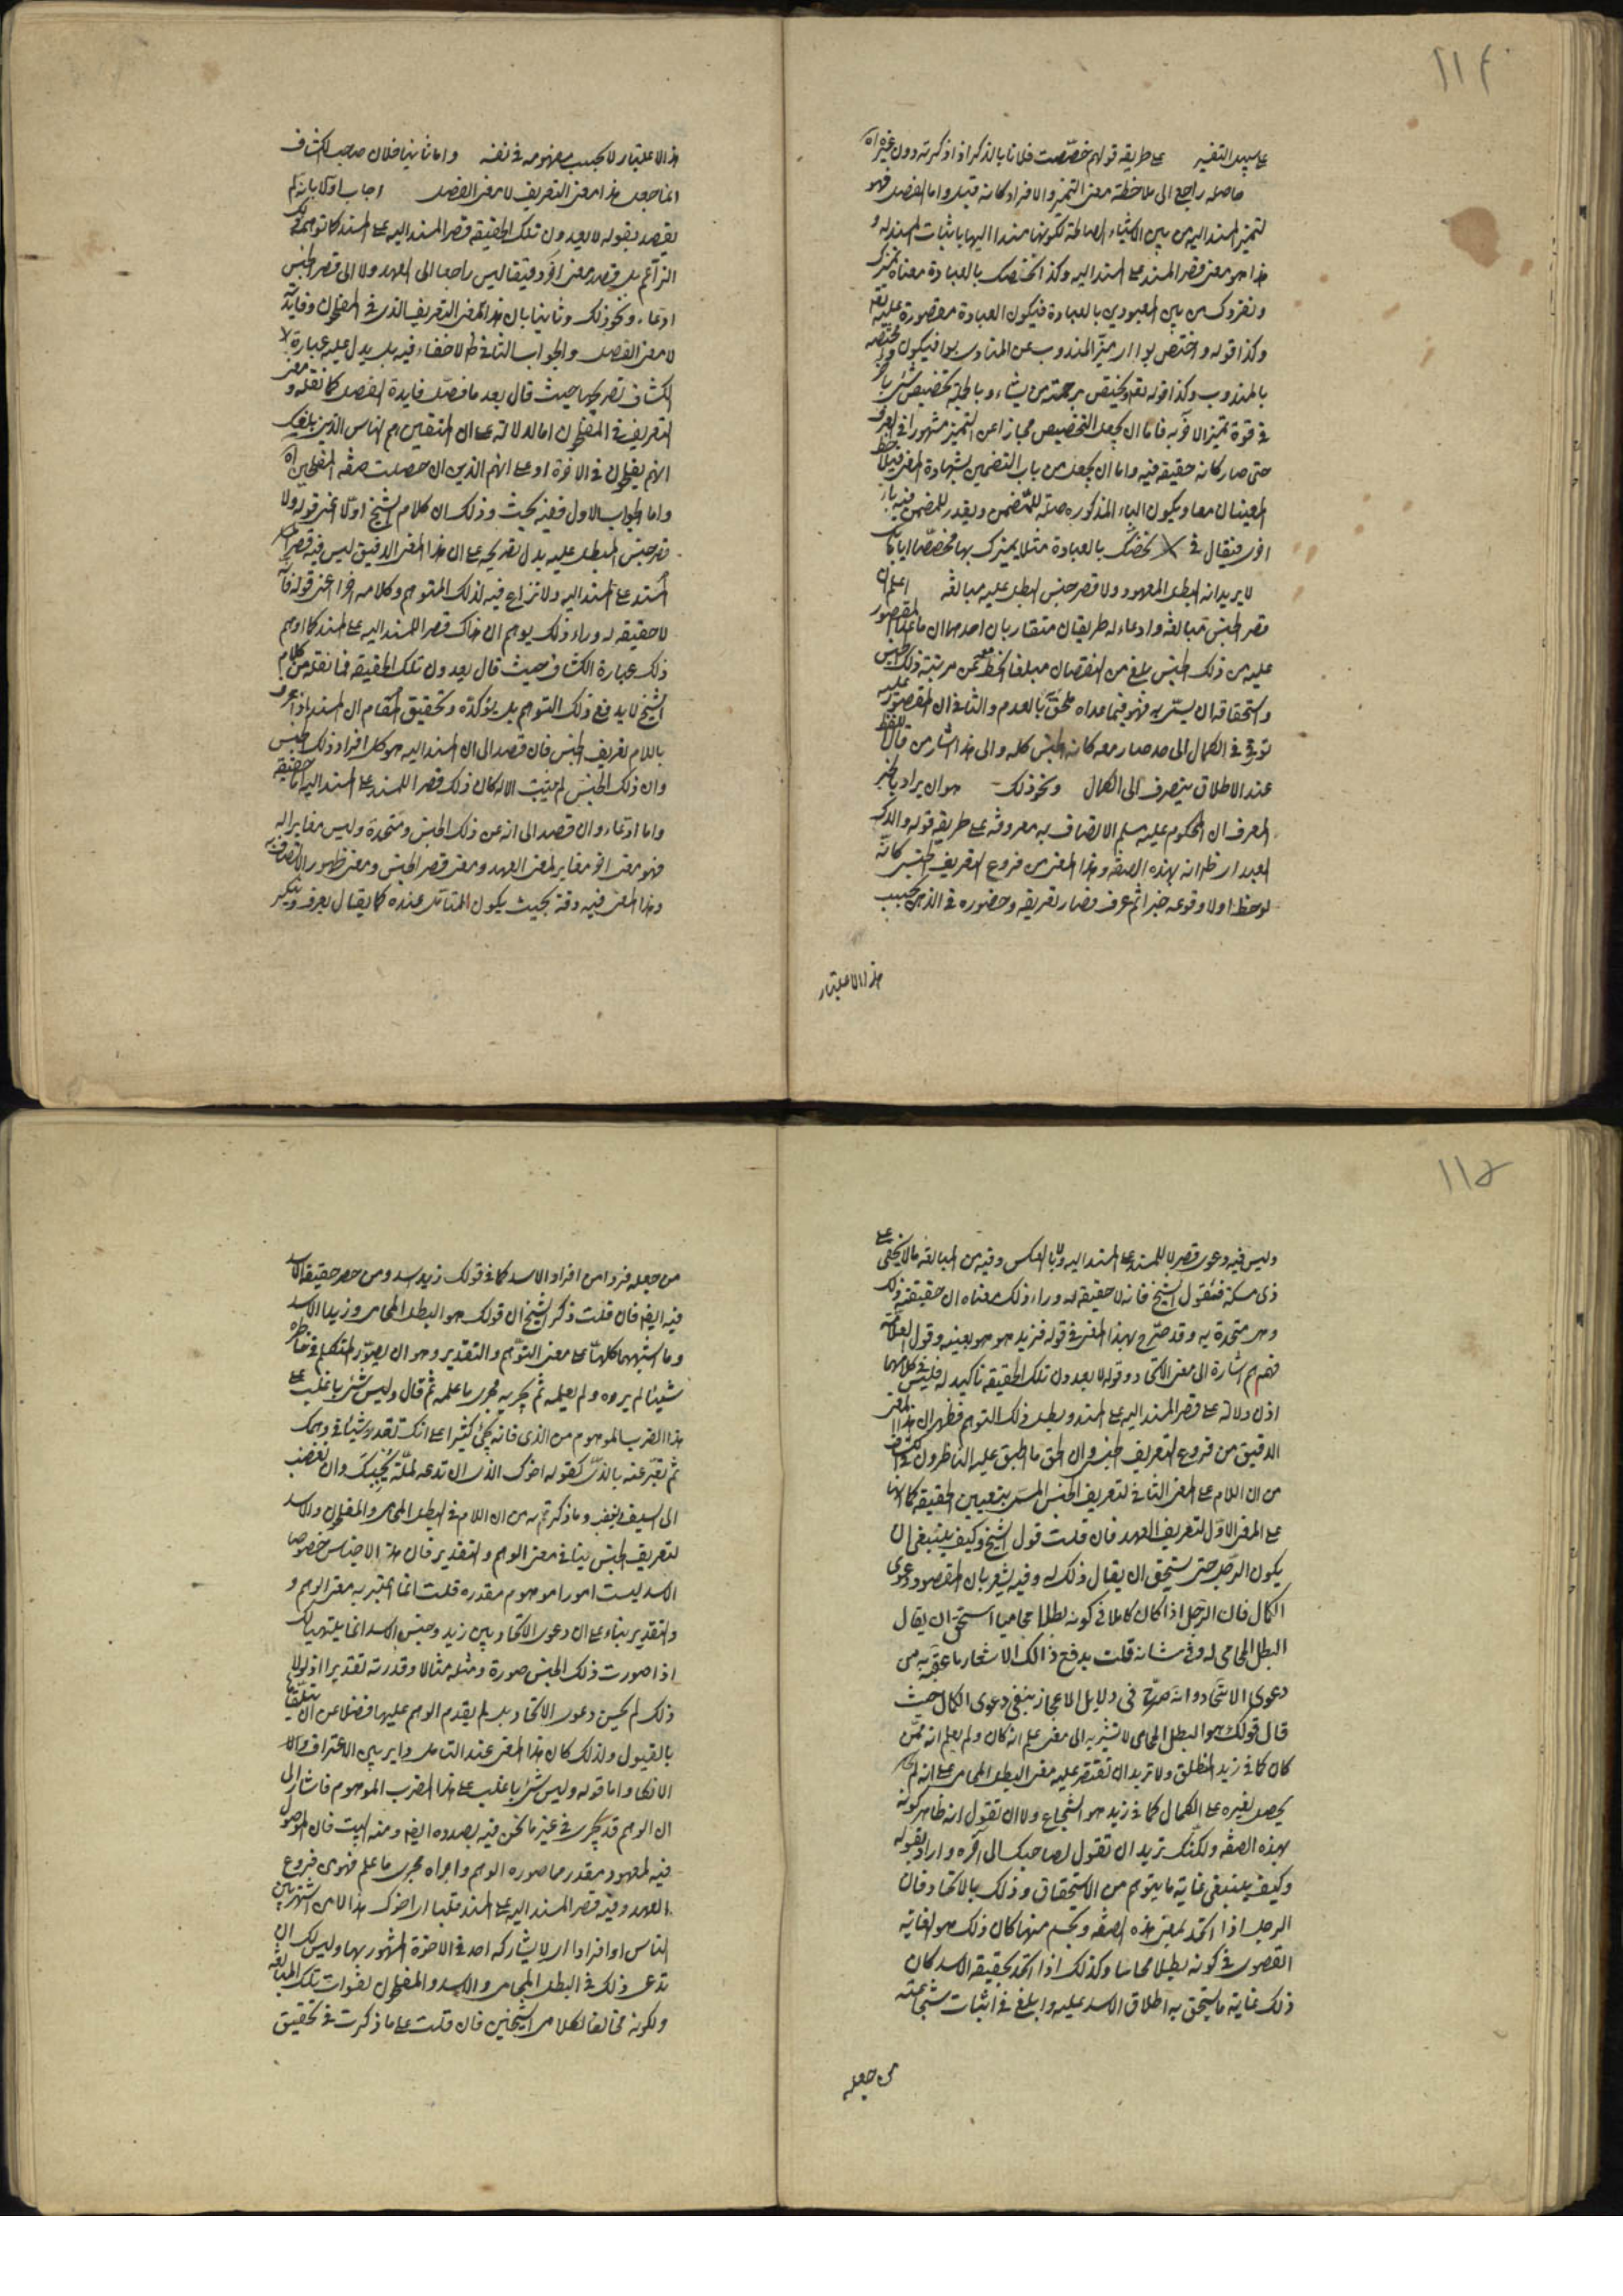 ١١٤
على سبيل التفسير على طريقة قولهم خصصت فلانا بالذكر اذا ذكرته دون غيره اه
حاصله راجع الى ملاحظة معنى التميز والافراد كانه قيل واما الفصل فهو
لتميز المسند اليه من بين الاشياء الصالحة لكونها مسندا اليها باثبات المسند له و
هذا هو معنى قصر المسند على المسند اليه وكذا نخصك بالعبادة معناه نميزك
ونفردك من بين المعبودين بالعبادة فيكون العبادة مقصورة عليه تعه
وكذا قوله واختص بوا اى ميز المندوب عن المنادى بوا فيكون مختصة
بالمندوب وكذا قوله تعه يختص برحمته من يشاء وبالجملة تخصيص شئ بآخر
فى قوة تميز الآخر به فاما ان يجعل التخصيص مجازا عن التميز مشهورا فى العرف
حتى صار كانه حقيقة فيه واما ان يجعل من باب التضمين بشهادة المعنى فيلاحظ
المعنيان معا ويكون الباء المذكورة صلة للمضمن ويقدر للمضمن فيه باء
اخرى فيقال فى نخصك بالعبادة مثلا نميزك بها مخصصا اياك
لا يريد انه البطل المعهود ولا قصر جنس البطل عليه مبالغة اعلم ان
قصر الجنس مبالغة وادعاء له طريقان متقاربان احدهما ان ما عدا المقصور
عليه من ذلك الجنس بلغ من النقصان مبلغا انحط معه عن مرتبة ذلك الجنس
واستحقاقه ان يسمى به فهو فيما عداه ملحق بالعدم والثانى ان المقصور عليه
ترقى فى الكمال الى حد صار معه كانه الجنس كله والى هذا اشار من قال اللفظ
عند الاطلاق ينصرف الى الكمال ونحو ذلك هو ان يراد بالخبر
المعرف ان المحكوم عليه مسلم الاتصاف به معروفه على طريقة قوله والدك
العبد اى ظ انه بهذه الصفة وهذا المعنى من فروع التعريف الجنسى كانه
لوحظ اولا وقوعه خبرا ثم عرف فصار تعريفه وحضوره فى الذهن بحسب
هذا الاعتبار
هذا الاعتبار لا بحسب مفهومه فى نفسه واما ثانيا فلان صاحب الكشاف
انما جعل هذا معنى التعريف لا معنى الفصل اجاب اولا بانه لم
يقصد بقوله لا يعدون تلك الحقيقة قصر المسند اليه على المسند كما توهمه ذلك
الزاعم بل قصد معنى آخر دقيقا ليس راجعا الى العهد ولا الى قصر الجنس
ادعاء ونحو ذلك وثانيا بان هذا لمعنى التعريف الذى فى المفلحون وفائدته
لا معنى الفصل والجواب الثانى ظ لا خفاء فيه بل يدل عليه عبارة
الكشاف تصريحا حيث قال بعد ما فصل فايدة الفصل كما نقله ومعنى
التعريف فى المفلحون اما لدلالته على ان المتقين هم الناس الذين بلغك
انهم يفلحون فى الآخرة او على انهم الذين ان حصلت صفة المفلحين اه
واما الجواب الاول ففيه بحث وذلك ان كلام الشيخ اولا اعنى قوله ولا
قصر جنس البطل عليه يدل بصريحه على ان هذا المعنى الدقيق ليس فيه قصر المسند
المسند على المسند اليه ولا نزاع فيه لذلك المتوهم وكلامه آخرا اعنى قوله فانه
لا حقيقة له وراء ذلك يوهم ان هناك قصرا للمسند اليه على المسند كما اوهم
ذلك عبارة الكشاف حيث قال لا يعدون تلك الحقيقة فما نقله من كلام
الشيخ لا يدفع ذلك التوهم بل يؤكده وتحقيق المقام ان المسند اذا عرف
باللام تعريف الجنس فان قصد الى ان المسند اليه هو كل افراد ذلك الجنس
وان ذلك الجنس لم يثبت الا له كان ذلك قصرا للمسند على المسند اليه اما حقيقة
واما ادعاء وان قصد الى انه عين ذلك الجنس ومتحد به وليس مغايرا له
فهو معنى آخر مغاير لمعنى العهد ومعنى قصر الجنس ومعنى ظهور الاتصاف به
وهذا المعنى فيه دقة بحيث يكون المتأمل عنده كما يقال يعرف وينكر
١١٥
وليس فيه دعوى قصر لا للمسند على المسند اليه ولا بالعكس وفيه من المبالغة ما لا يخفى على
ذى مسكة فنقول الشيخ فانه لا حقيقة له وراء ذلك معناه ان حقيقته ذلك
وهى متحدة به وقد صرح بهذا المعنى فى قوله فزيد هو هو بعينه وقول العلامة
فهم هم اشارة الى معنى الاتحاد وقوله لا يعدون تلك الحقيقة تاكيد له فليس فى كلامهما
اذن دلالة على قصر المسند اليه على المسند وبطل ذلك التوهم فظهر ان هذا المعنى
الدقيق من فروع التعريف الجنسى وان الحق ما اطبق عليه الناظرون فى الكشاف
من ان اللام على المعنى الثانى لتعريف الجنس المسمى بتعيين الحقيقة كما انها
على المعنى الاول لتعريف العهد فان قلت قول الشيخ وكيف ينبغى ان
يكون الرجل حتى يستحق ان يقال ذلك له وفيه يشعر بان المقصود دعوى
الكمال فان الرجل اذا كان كاملا فى كونه بطلا محاميا استحق ان يقال
البطل المحامى له وفى شانه قلت يدفع ذلك الاشعار ما عقبه به من
دعوى الاتحاد وانه صرح فى دلايل الاعجاز بنفى دعوى الكمال حيث
قال قولك هو البطل المحامى لا تشير به الى معنى علم انه كان ولم يعلم انه ممن
كان كما فى زيد المنطلق ولا تريد ان تقتصر عليه معنى البطل المحامى على انه لم
يحصل لغيره على الكمال كما فى زيد هو الشجاع ولا ان تقول انه ظاهر كونه
بهذه الصفة ولكنك تريد ان تقول لصاحبك الى آخره واراد بقوله
وكيف ينبغى غاية ما يتوهم من الاستحقاق وذلك بالاتحاد فان
الرجل اذا اتحد بمعنى هذه الصفة وتجسم منها كان ذلك هو الغاية
القصوى فى كونه بطلا محاميا وكذلك اذا اتحد بحقيقة الاسد كان
ذلك غاية ما يستحق به اطلاق الاسد عليه وابلغ فى اثبات شجاعته
من جعله
من جعله فردا من افراد الاسد كما فى قولك زيد اسد ومن حصر حقيقة الاسد
فيه ايضا فان قلت ذكر الشيخ ان قولك هو البطل المحامى وزيد الاسد
وما اشبههما كلها على معنى التوهم والتقدير وهو ان يصور المتكلم فى خاطره
شيئا لم يره ولم يعلمه ثم يجريه مجرى ما علمه ثم قال وليس شئ باغلب على
هذا الضرب الموهوم من الذى فانه يجئ كثيرا على انك تقدر شيئا فى وهمك
ثم تعبر عنه بالذى كقوله اخوك الذى ان تدعه لملمة يجبك وان تغضب
الى السيف يغضب وما ذكرتم به من ان اللام فى البطل المحامى والمفلحون والاسد
لتعريف الجنس ينافى معنى الوهم والتقدير فان هذه الاجناس خصوصا
الاسد ليست امورا موهومة مقدرة قلت انما اعتبر به معنى الوهم و
والتقدير بناء على ان دعوى الاتحاد بين زيد وجنس الاسد انما يتهيأ لك
اذا صورت ذلك الجنس صورة ومثله مثالا وقدرته تقديرا اذ لولا
ذلك لم يحسن دعوى الاتحاد بل لم يقدم الوهم عليها فضلا عن ان يتلقاها
بالقبول ولذلك كان هذا المعنى عند التامل دايرا بين الاعتراف والا
الانكار واما قوله وليس شئ باغلب على هذا الضرب الموهوم فاشار الى
ان الوهم قد يجرى فى غير ما نحن فيه بصدده ايضا ومنه البيت فان الموصول
فيه لمعهود مقدر مما صوره الوهم واجراه مجرى ما علم فهو من فروع
العهد وفيه قصر المسند اليه على المسند قلبا اى اخوك هذا لا من اشتهر بين
الناس او افرادا اى لا يشاركه احد فى الاخوة المشهور بها وليس لك ان
تدعى ذلك فى البطل المحامى والاسد والمفلحون لفوات تلك المبالغة
ولكونه مخالفا لكلام الشيخين فان قلت على ما ذكرت فى تحقيق